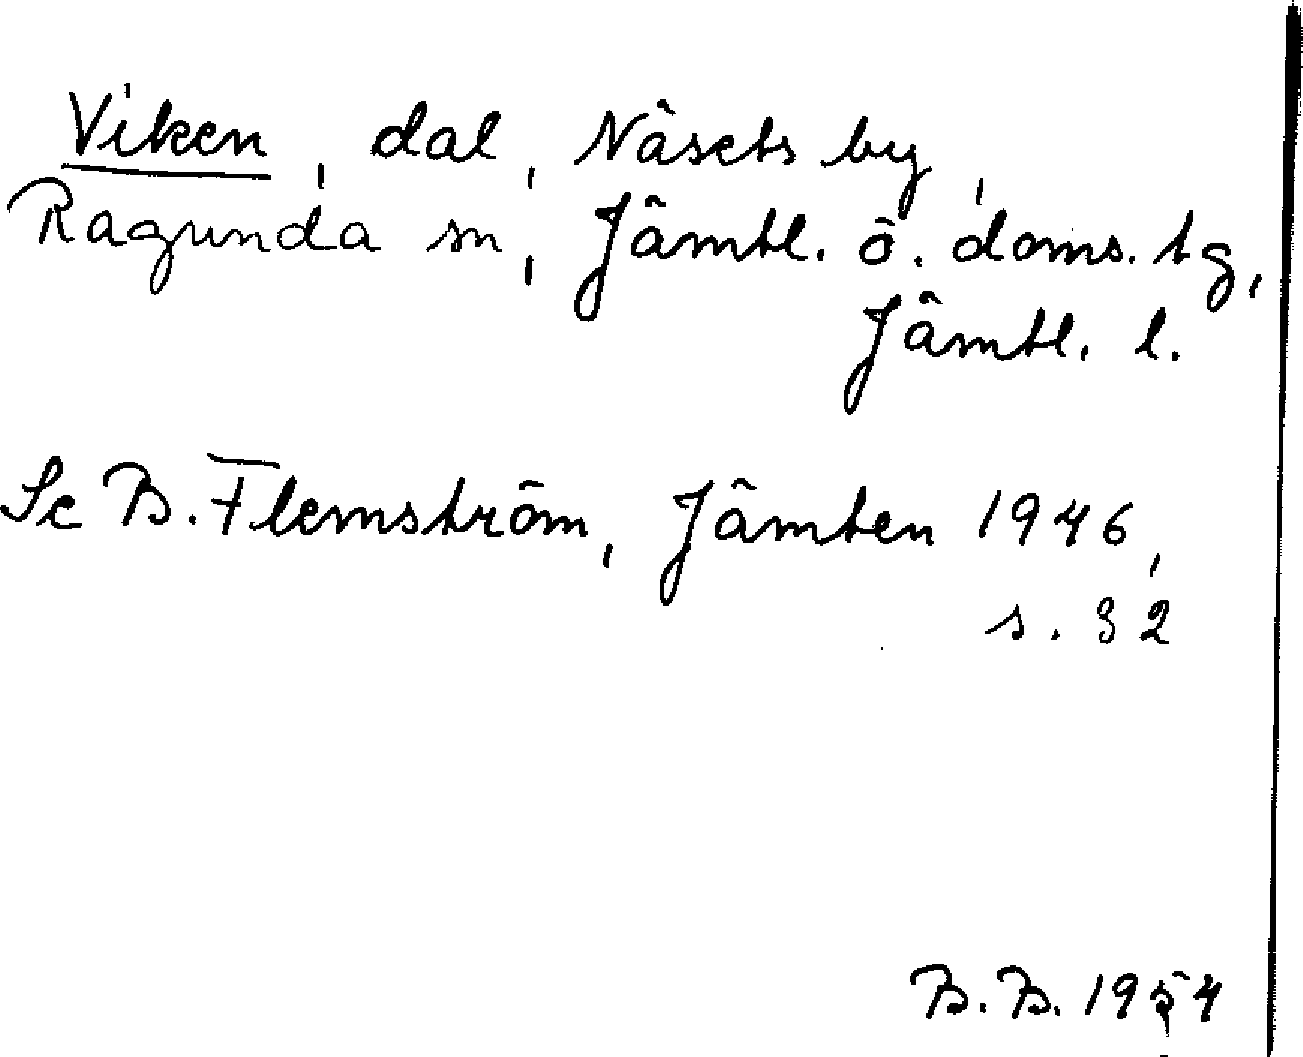 Viken, dal, Näsets by,
Ragunda sn, Jämtl. ö. doms. tg,
Jämtl. l.
Se B. Flemström, Jämten 1946,
s. 32
B. B. 1954